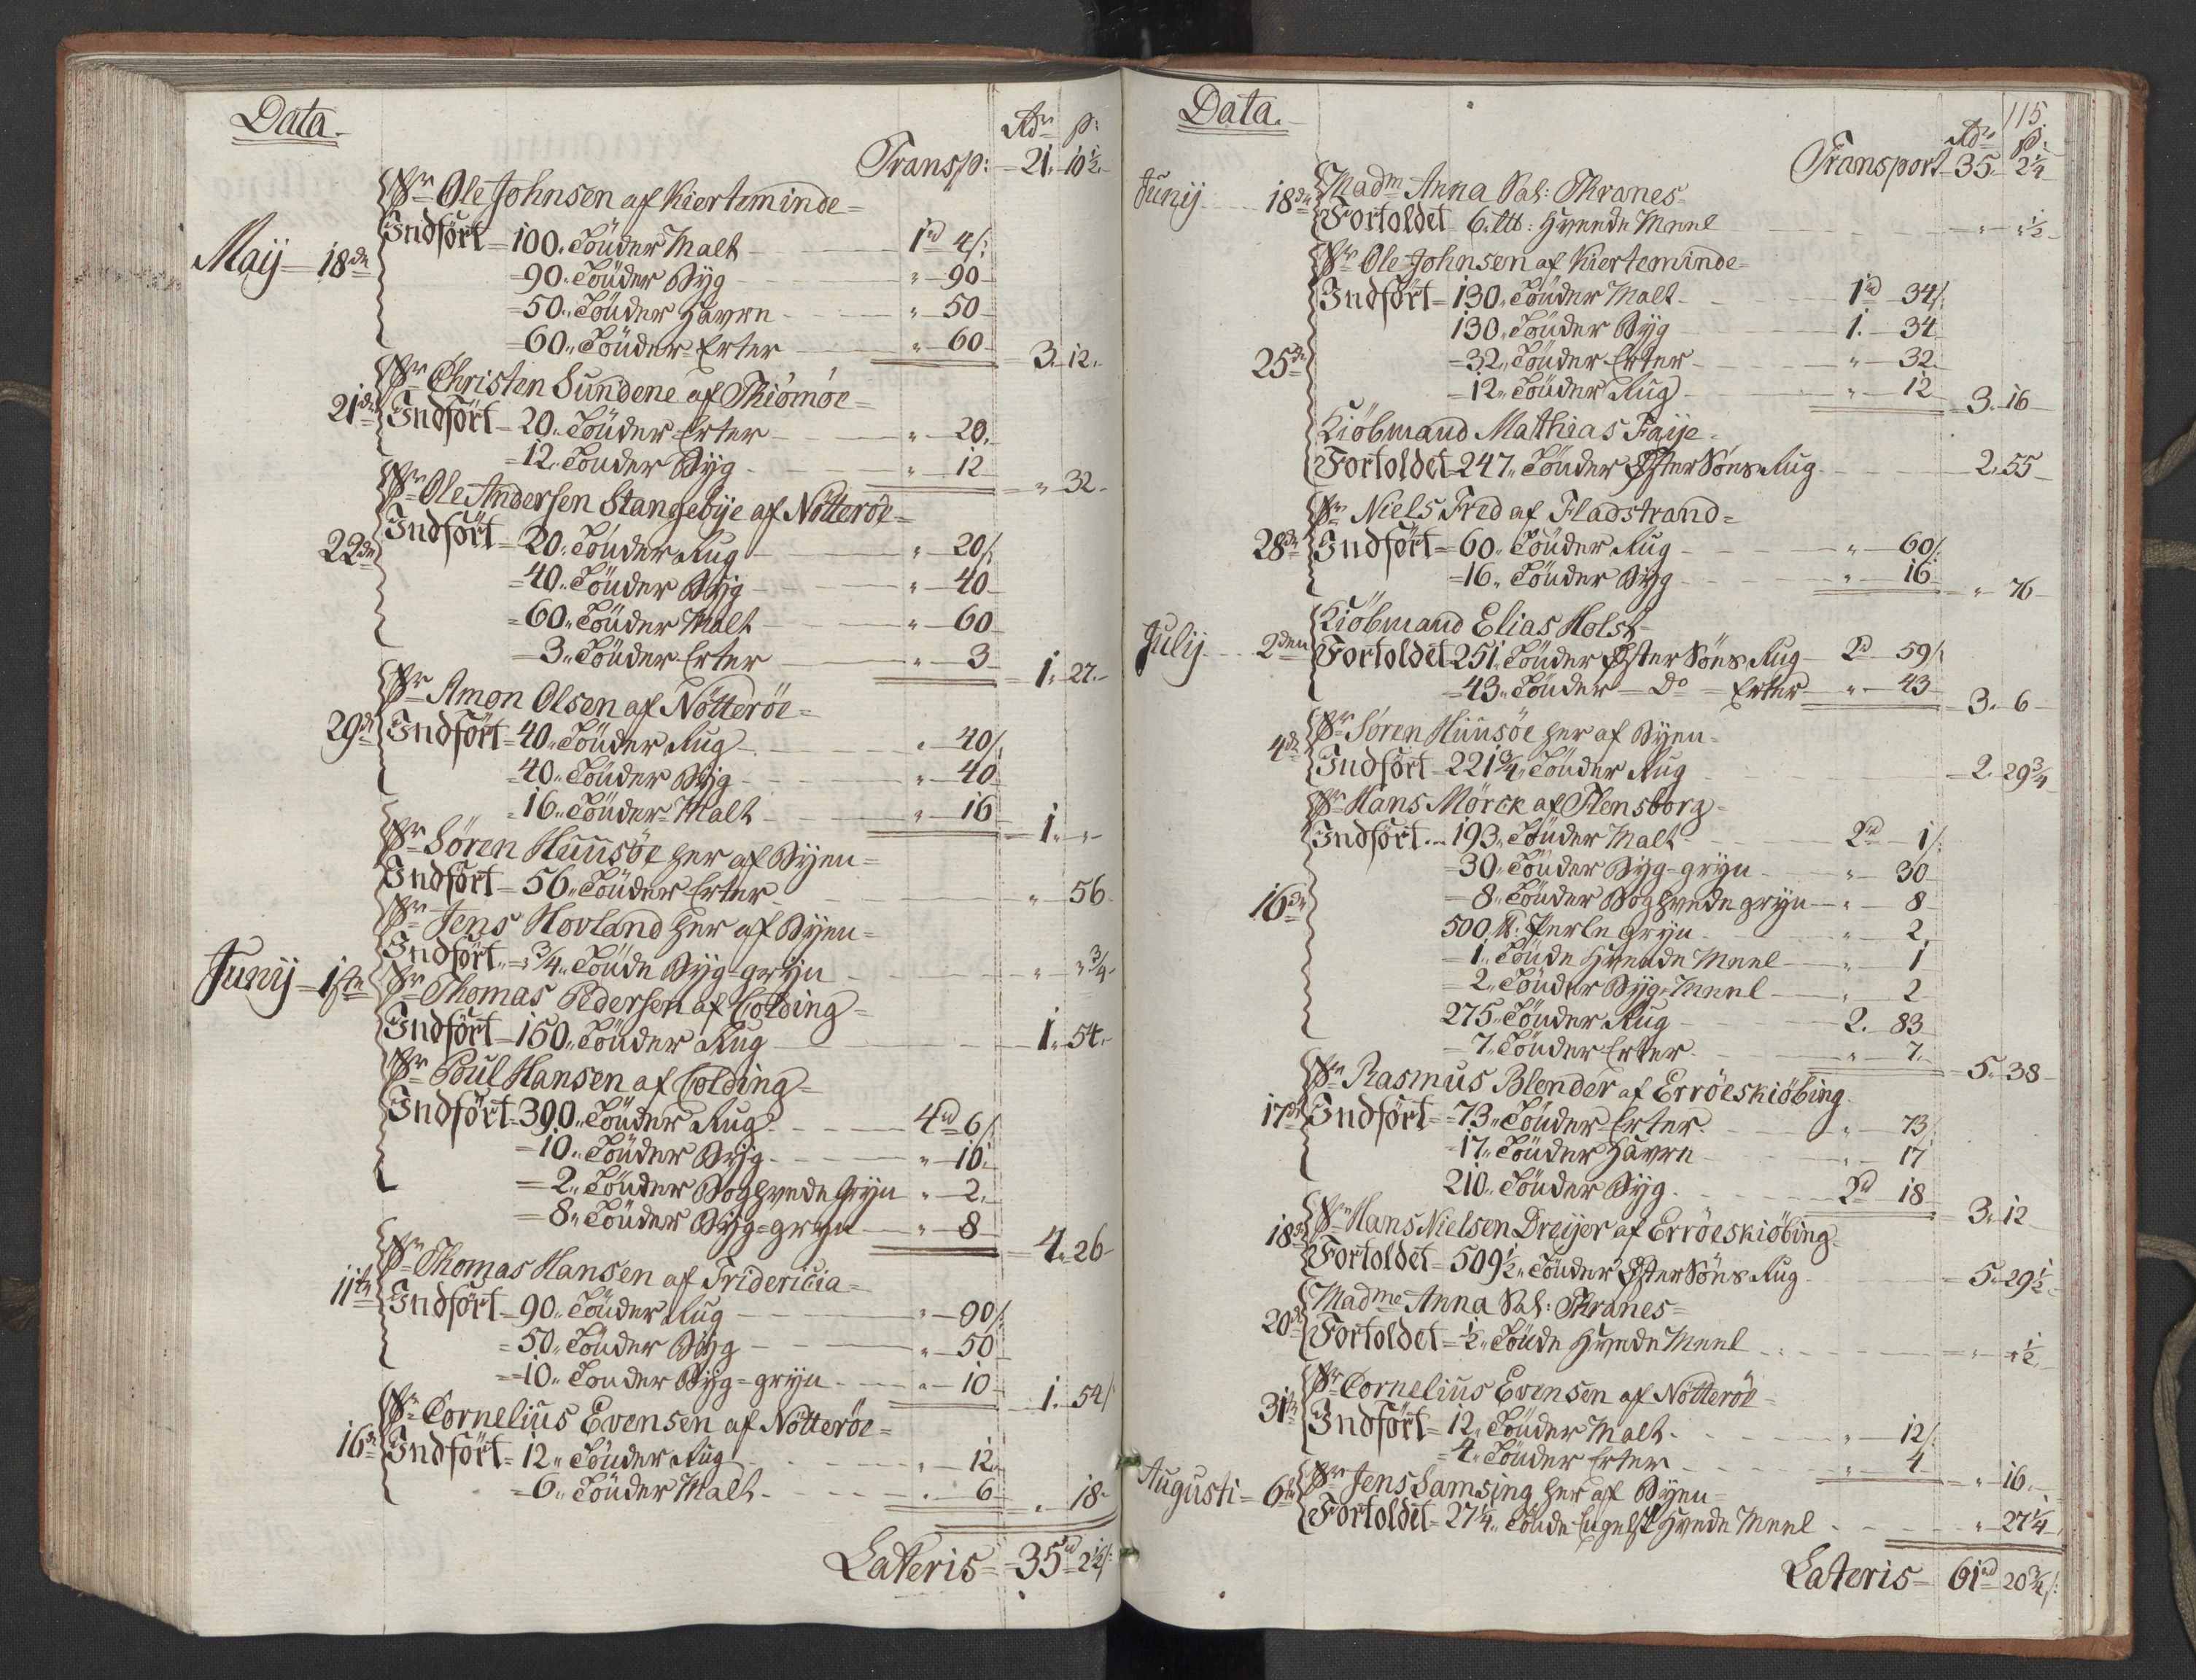 Data.
Rdr ß:
Transp: 21. 10½.
Sr Ole Johnsen af Kierteminde
Maij 18de Indført 100. Tønder Malt 1rd 4ß:
90. Tønder Byg " 90
50. Tønder Havre " 50
60. Tønder Erter " 60 3. 12.
Sr Christen Sundene af Thiømøe
21de Indført 20. Tønder Erter " 20.
12. Tønder Byg " 12 " 32.
Sr Ole Andersen Stangebije af Nötteröe
22de Indført 20. Tønder Rug " 20ß
40. Tønder Byg " 40
60. Tønder Malt " 60
3. Tønder Erter " 3 1. 27.
Sr Amon Olsen af Nötteröe
29de Indført 40. Tønder Rug " 40ß
40. Tønder Byg " 40
16. Tønder Malt " 16 1. "
Sr Sören Huusöe her af Byen
Indført 56. Tønder Erter " 56.
Sr Jens Hovland her af Byen
Indført ¾. Tønde Byg-gryn " "¾
Junij 1ste Sr Thomas Pedersen af Colding
Indført 150. Tønder Rug 1. 54.
Sr Poul Hansen af Colding
Indført 390. Tønder Rug 4rd 6ß
10. Tønder Byg " 10.
2. Tønder Boghvede Gryn " 2.
8. Tønder Byg-gryn " 8 4. 26
Sr Thomas Hansen af Fridericia
11te Indført 90. Tønder Rug " 90ß
50. Tønder Byg " 50
10. Tønder Byg-gryn " 10 1. 54ß
Sr Cornelius Evensen af Nötteröe
16de Indført 12. Tønder Rug " 12.
6. Tønder Malt " 6 " 18
Lateris 35rd 2¼ß:
Data.
115.
Rdr ß:
Transport 35. 2¼
Junij 18de Madm Anna Sal: Thranes
Fortoldet 6. Ltt: Hveede Meel " "½
Sr Ole Johnsen af Kierteminde
Indført 130. Tønder Malt 1rd 34ß:
130. Tønder Byg 1. 34
25de 32. Tønder Erter " 32
12. Tønder Rug " 12 3. 16
Kiöbmand Mathias Faije
Fortoldet 247. Tønder Øster Söes Rug 2. 55
Sr Niels Fred af Fladstrand
28de Indført 60. Tønder Rug " 60ß:
16. Tønder Byg " 16 " 76
Kiöbmand Elias Holst
Julij 2den Fortoldet 251. Tønder Øster Söes Rug 2rd 59ß
43. Tønder Do Erter " 43 3. 6
Sr Sören Huusöe her af Byen
4de Indført 221¾. Tønder Rug 2. 29¾
Sr Hans Mörck af Flensborg
Indført 193. Tønder Malt 2rd 1ß:
30. Tønder Byg-gryn " 30
16de 8. Tønder Boghvede gryn " 8
500 ℔: Perle gryn " 2
1. Tønde Hveede Meel " 1
2. Tønder Byg-Meel " 2
275. Tønder Rug 2. 83
7. Tønder Erter " 7. 5. 38
Sr Rasmus Blender af Erröeskiöbing
17de Indført 73. Tønder Erter " 73ß
17. Tønder Havre " 17
210. Tønder Byg 2rd 18 3. 12
Sr Hans Nielsen Dreijer af Erröeskiöbing
18de Fortoldet 509½. Tønder Øster Söes Rug 5. 29½
Madme Anna Sal: Thranes
20de Fortoldet ½. Tønde Hvede Meel " "½
Sr Cornelius Evensen af Nötteröe
31te Indført 12. Tønder Malt " 12ß:
4. Tønder Erter " 4 " 16.
Augusti 6te Sr Jens Samsing her af Byen
Fortoldet 27¼. Tønde Engelst Hvede Meel " 27¼
Lateris 61rd 20¾ß: